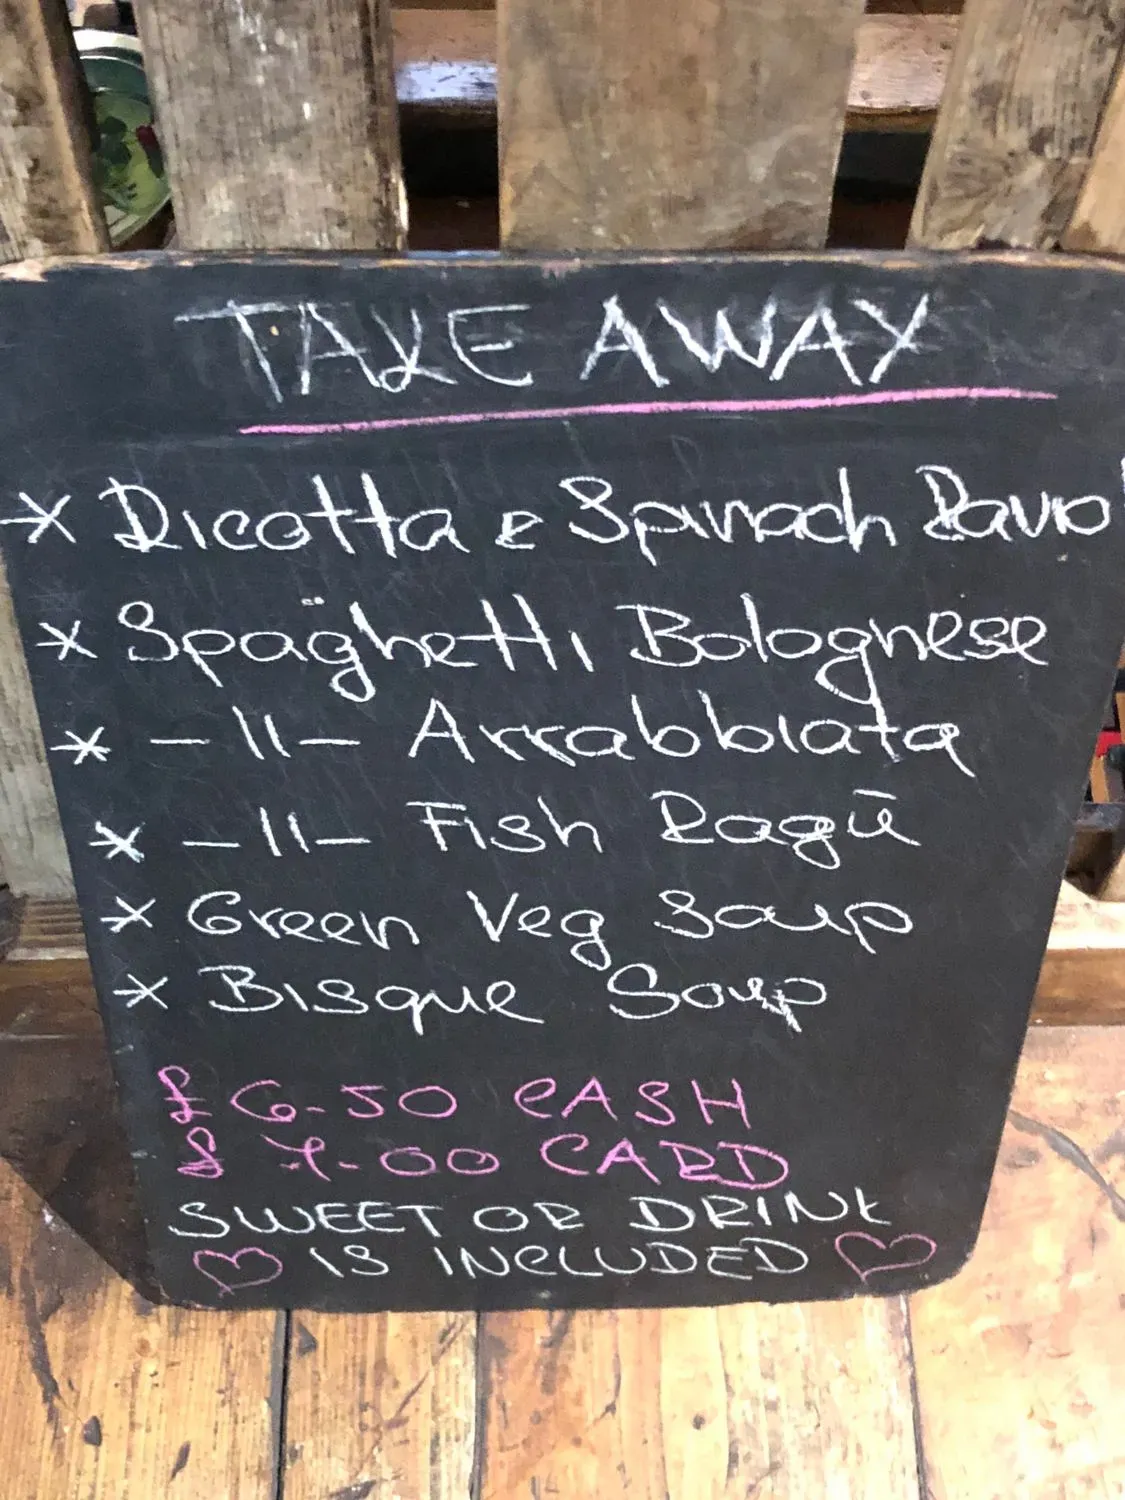 TAKE AWAY
* Ricotta e Spinach Ravio
* Spaghetti Bolognese
* -11- Arrabbiata
* -11- Fish Ragū
* Green Veg Soup
* Bisque Soup
£ 6-50 CASH
£ 7-00 CARD
SWEET OR DRINK
IS INCLUDED